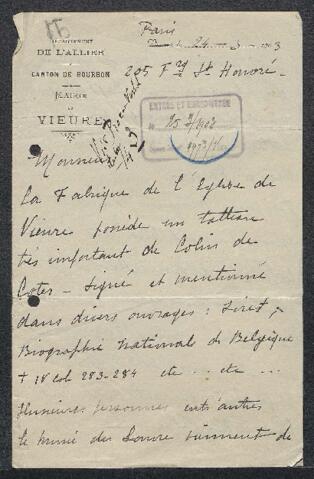 Paris
DÉPARTEMENT
DE L'ALLIER
CANTON DE BOURBON
MAIRIE
DE
VIEURE
205 Fg St Honoré.
ENTRÉE ET ENREGISTRÉE
le 25 3/1903
Monsieur
La Fabrique de l'Eglise de
Vieure possède un tableau
très important de Colin de
Coter. Signé et mentionné
dans divers ouvrages : Siret,
Biographie Nationale de Belgique
t 18 col 283-284 etc... etc...
Plusieurs personnes entr'autres
le musée du Louvre viennent de